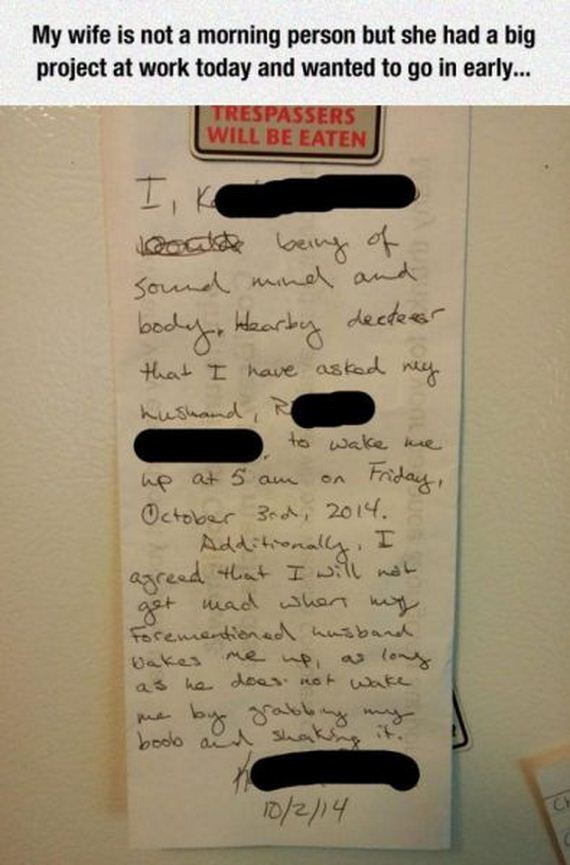 My wife is not a morning person but she had a big
project at work today and wanted to go in early...
TRESPASSERS
WILL BE EATEN
I, K
being of
sound mind and
body, Hearby
that I have asked my
husband, R
, to wake me
up at 5 am on Friday,
October 3rd, 2014.
Additionally, I
agreed that I will not
get mad when my
Forementioned husband
wakes me up, as long
as he does not wake
me by grabbing my
boob and shaking it.
K
10/2/14